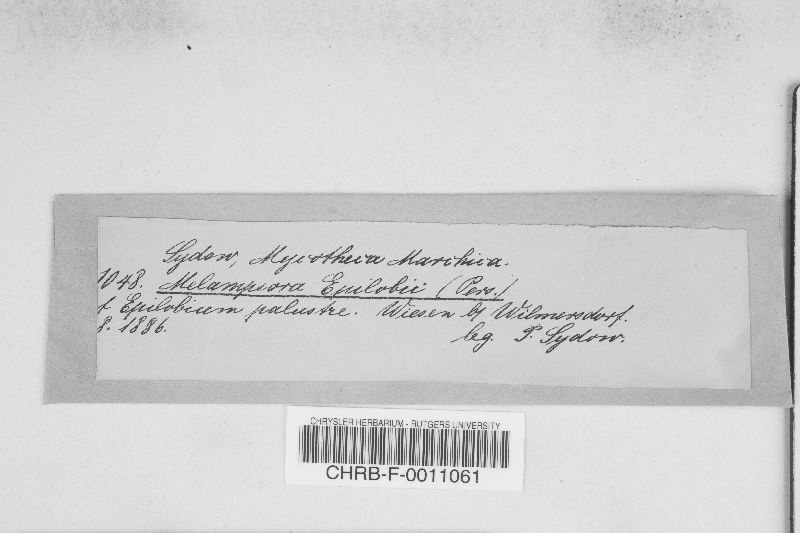 Sydow, Mycotheca Marchica.
1048. Melampsora Epilobii (Pers.)
f. Epilobium palustre. Wiesen bej Wilmersdorf.
8. 1886. leg. P. Sydow.
CHRYSLER HERBARIUM - RUTGERS UNIVERSITY
CHRB-F-0011061